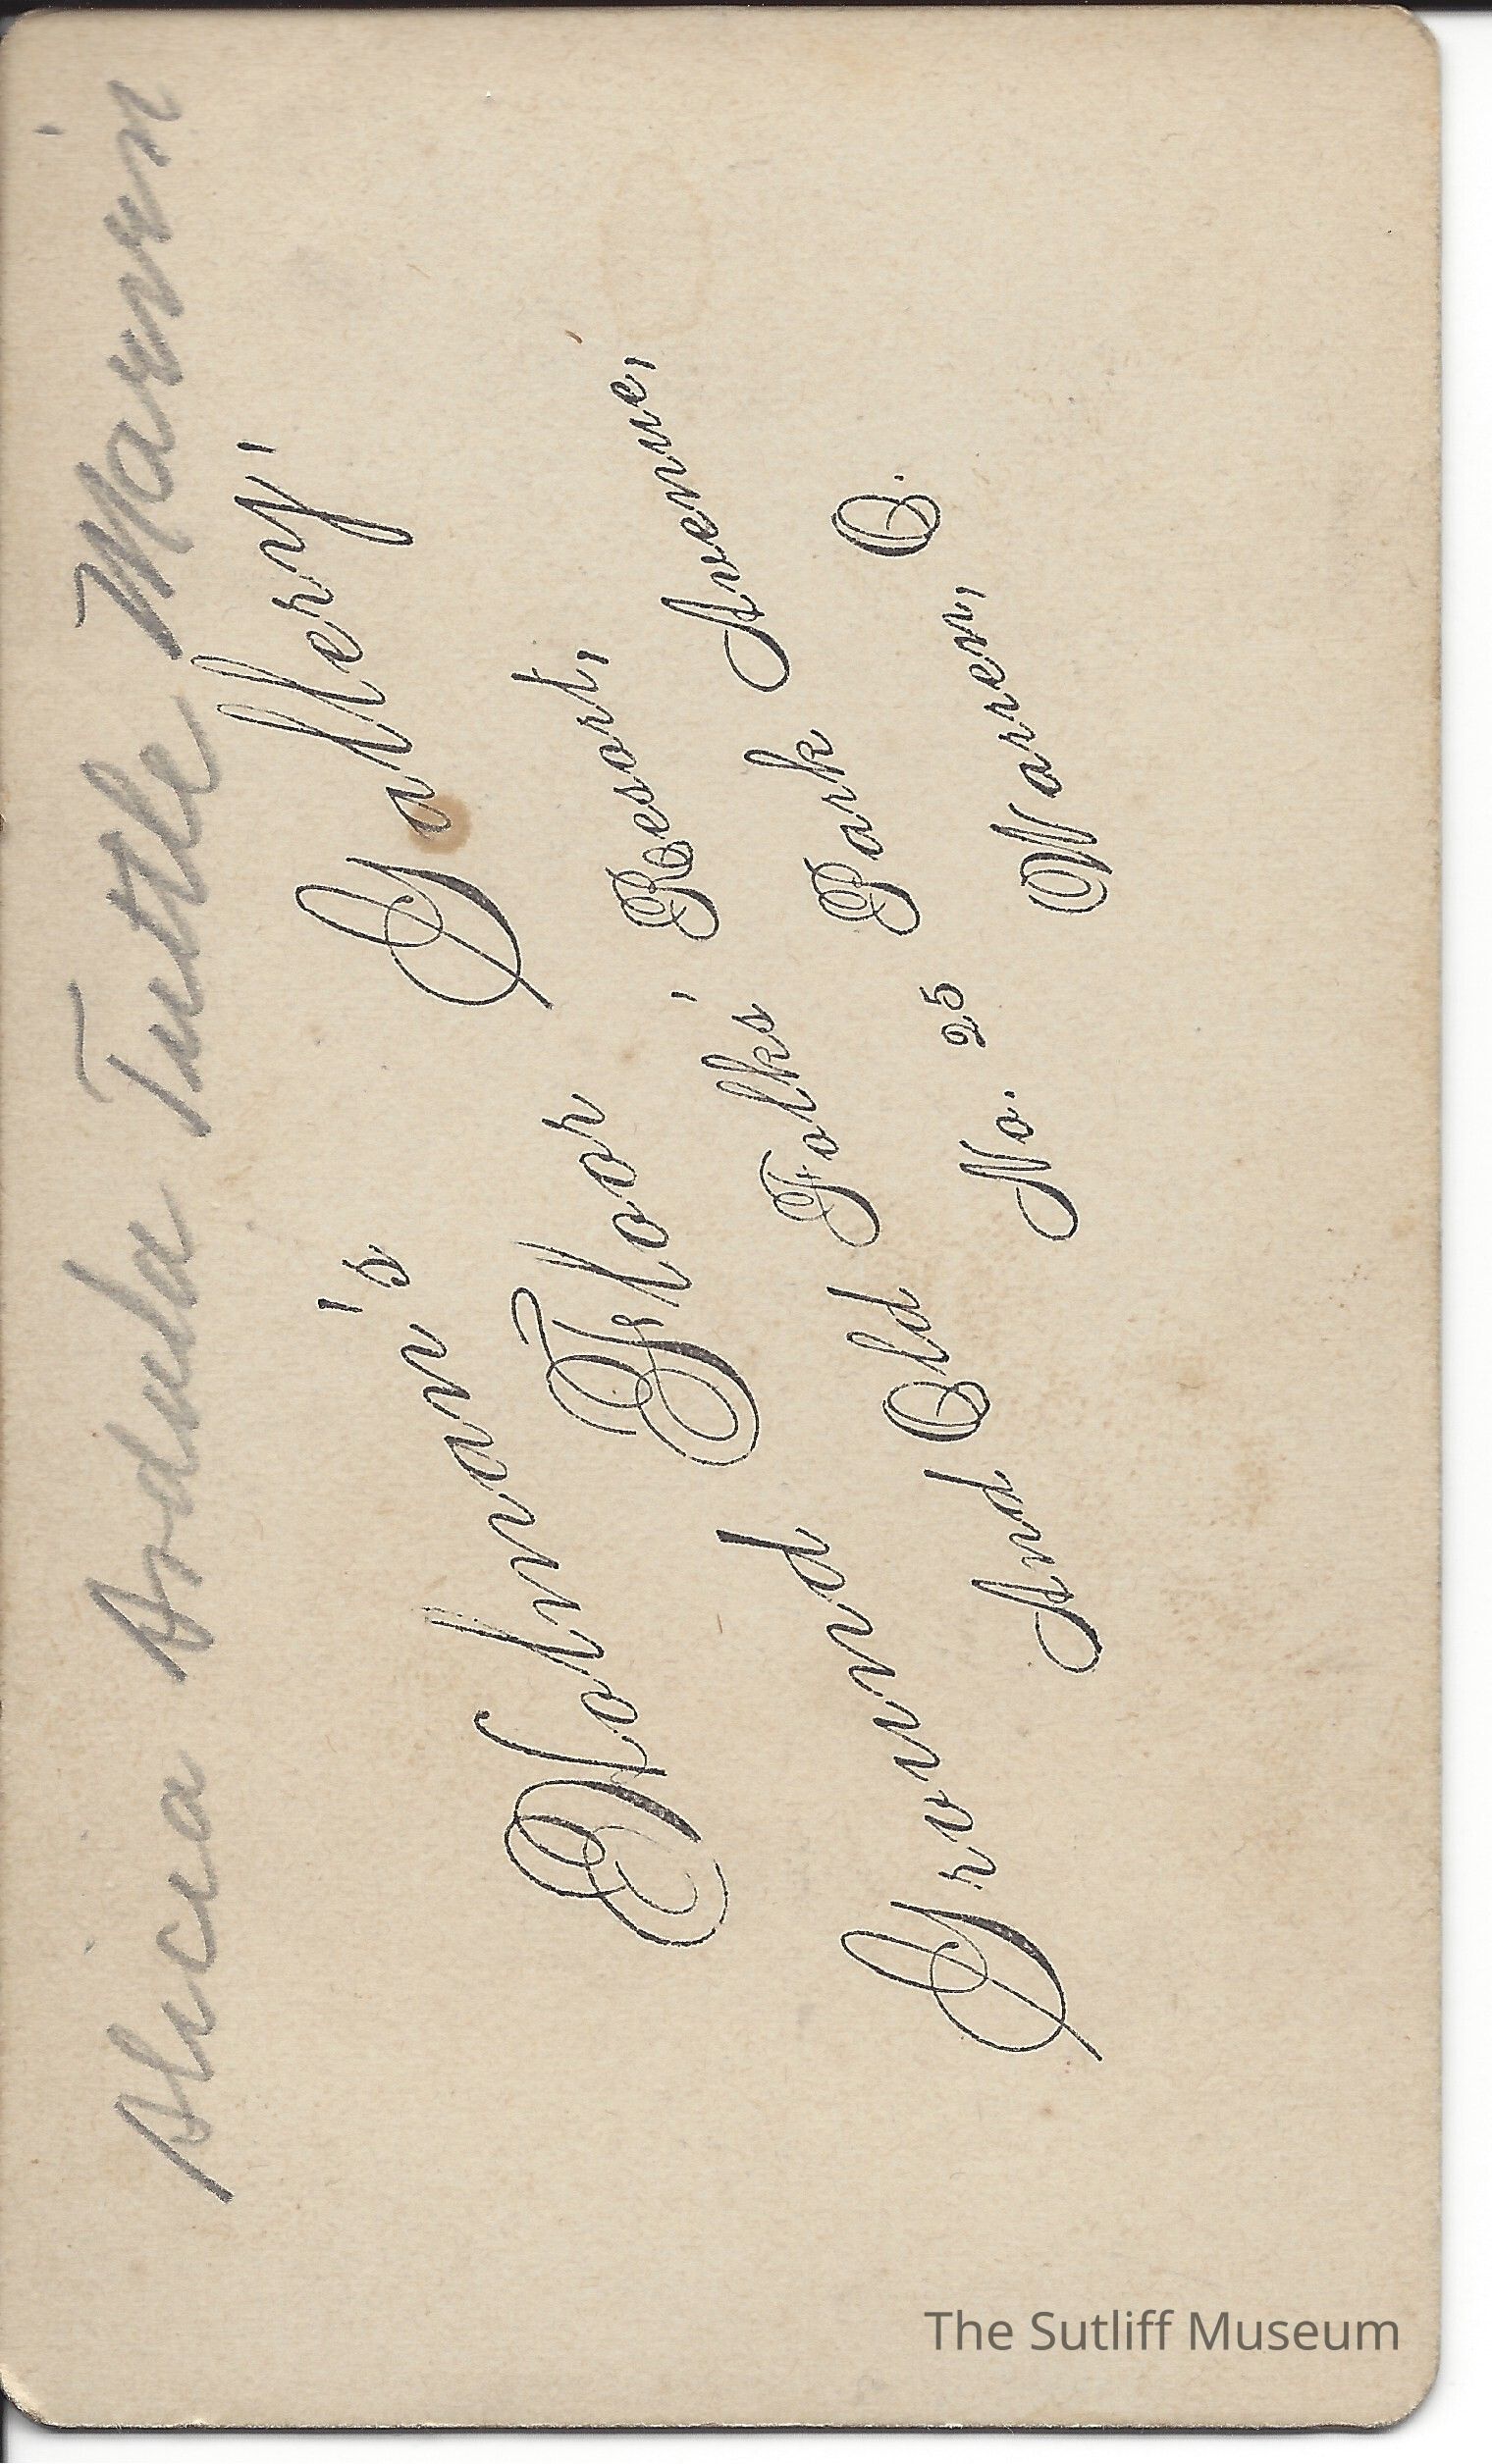 Alicia Ardula Tuttle Marvin
Holman's Gallery,
Ground Floor,
And Old Folks' Resort,
No. 25 Park Avenue,
Warren, O.
The Sutliff Museum